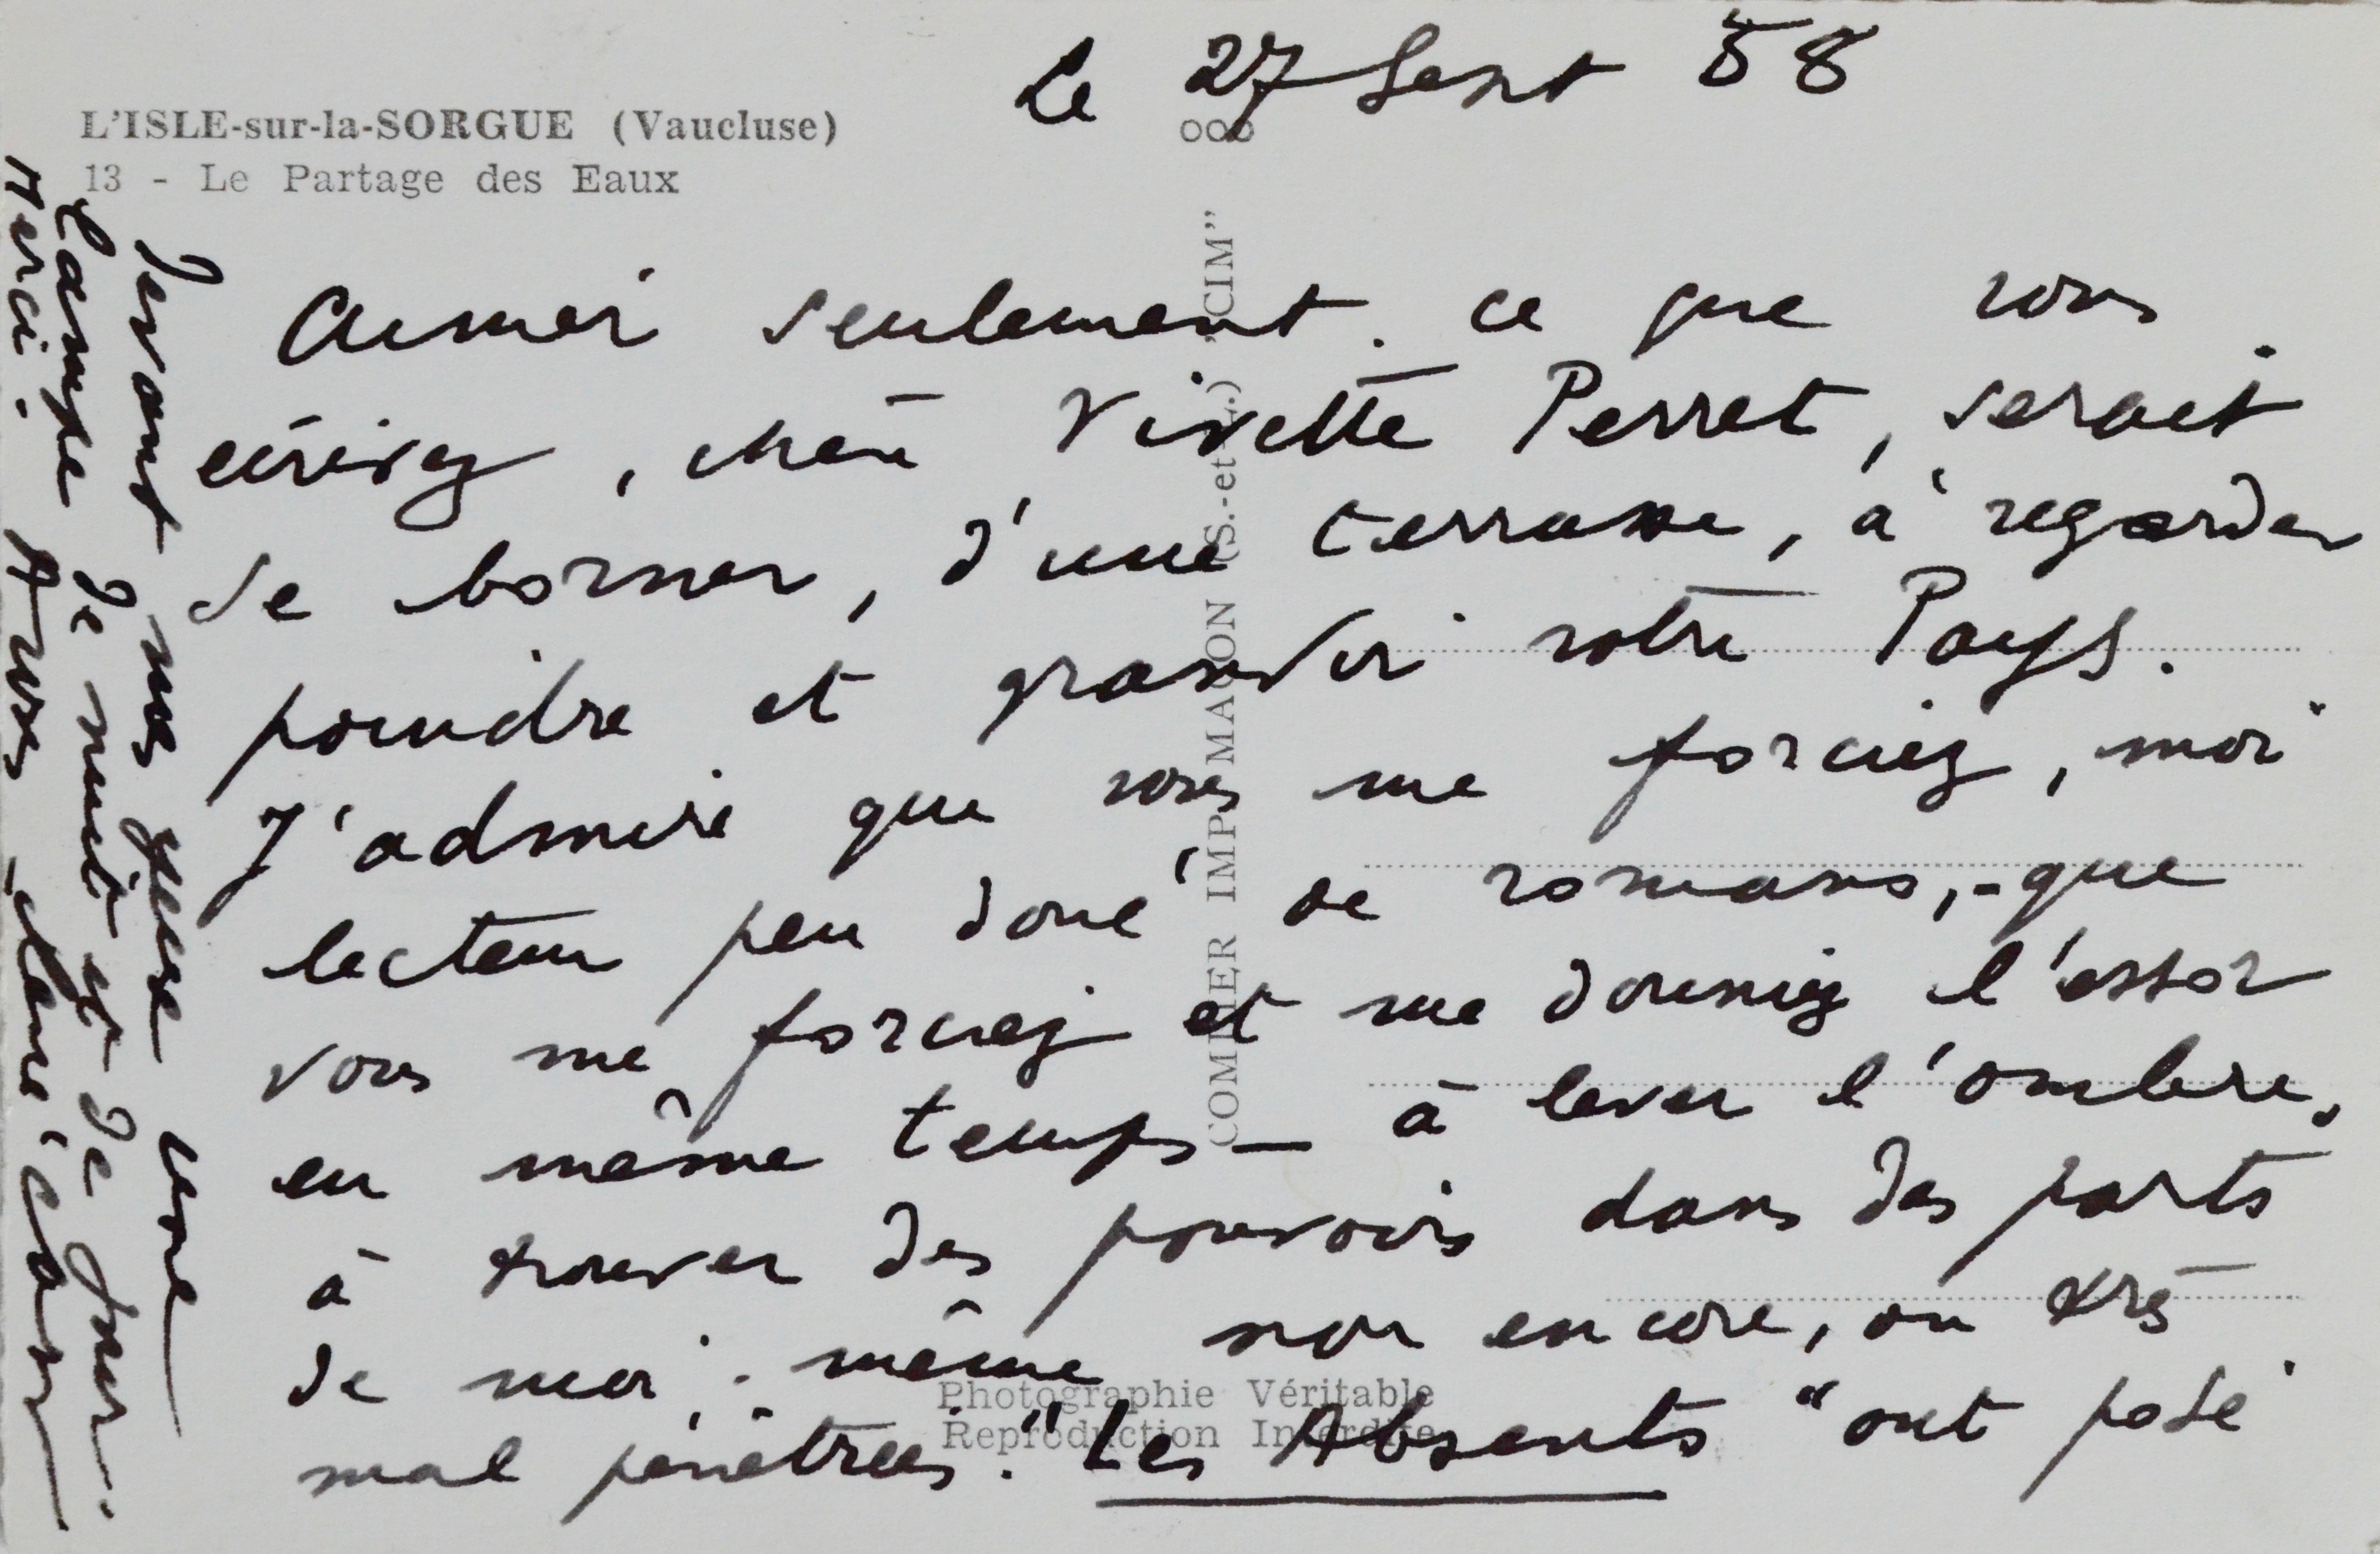 Le 27 Sept 58
L'ISLE-sur-la-SORGUE (Vaucluse)
13 - Le Partage des Eaux
Aimer seulement ce que vous
écrivez, chère Vivette Perret, serait
se borner, d'une terrasse, à regarder
poindre et grandir votre Pays.
J'admire que vous me forciez, moi
lecteur peu doué de romans, - que
vous me forciez et me donniez l'essor
en même temps — à lever l'ombre,
à trouver des pouvoirs dans des parts
de moi-même non encore, ou très
mal pénétrées. "Les Absents" ont posé
devant mes yeux une
lampe de nuit et de jour.
Merci. Avec
COMBIER IMP. MACON (S.-et-L.) "CIM"
Photographie Véritable
Reproduction Interdite